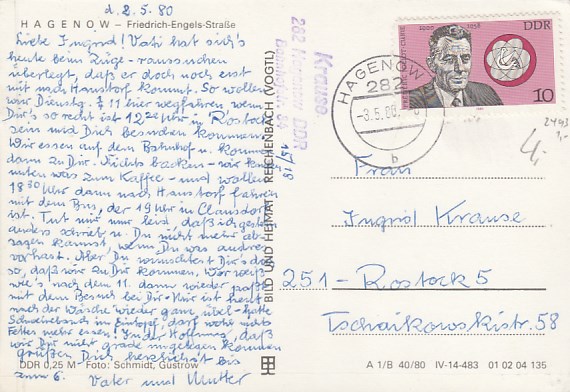 d. 2.5.80
HAGENOW – Friedrich-Engels-Straße
Liebe Ingrid! Vati hat sich's
heute beim Züge-raussuchen
überlegt, daß er doch noch erst
mit nach Hanstorf kommt. So wollen
wir Dienstg. hier wegfahren, wenn
Dir's so recht ist 12 Uhr in Rostock
sein und Dich besuchen kommen.
Wir essen auf dem Bahnhof u. kommen
dann zu Dir. Nichts backen - wir
was zum Kaffee - und wollen
18 30 Uhr dann nach Hanstorf fahren
mit dem Bus, der 19 Uhr in Clausdorf
ist. Tut mir nur leid, daß ich gestern
anders schrieb u. Du nicht mehr ab-
sagen kannst, wenn Du was andres
vorhast. Aber Du wünschtest Dir's doch
so, daß wir zu Dir kommen. Wer weiß
wie's nach dem 11. dann wieder paßt
mit dem Besuch bei Dir. ist heut
nach der Wäsche wieder ganz übel - hatte
Schweinebauch im Eintopf, darf wohl nichts
Fettes mehr essen! In der Hoffnung, daß
wir Dir nicht grade ungelegen kommen
grüßen Dich herzlichst bis
zum 6. Vater und Mutter
DDR 0,25 M Foto: Schmidt, Güstrow
BILD UND HEIMAT REICHENBACH (VOGTL)
15/18
Krause
282 Hagenow DDR
84
HAGENOW
282
-3.5.80
b
1900 1958
DDR
10
2493
4,-
Frau
Ingrid Krause
251 - Rostock 5
Tschaikowskistr. 58
A 1/B 40/80 IV-14-483 01 02 04 135